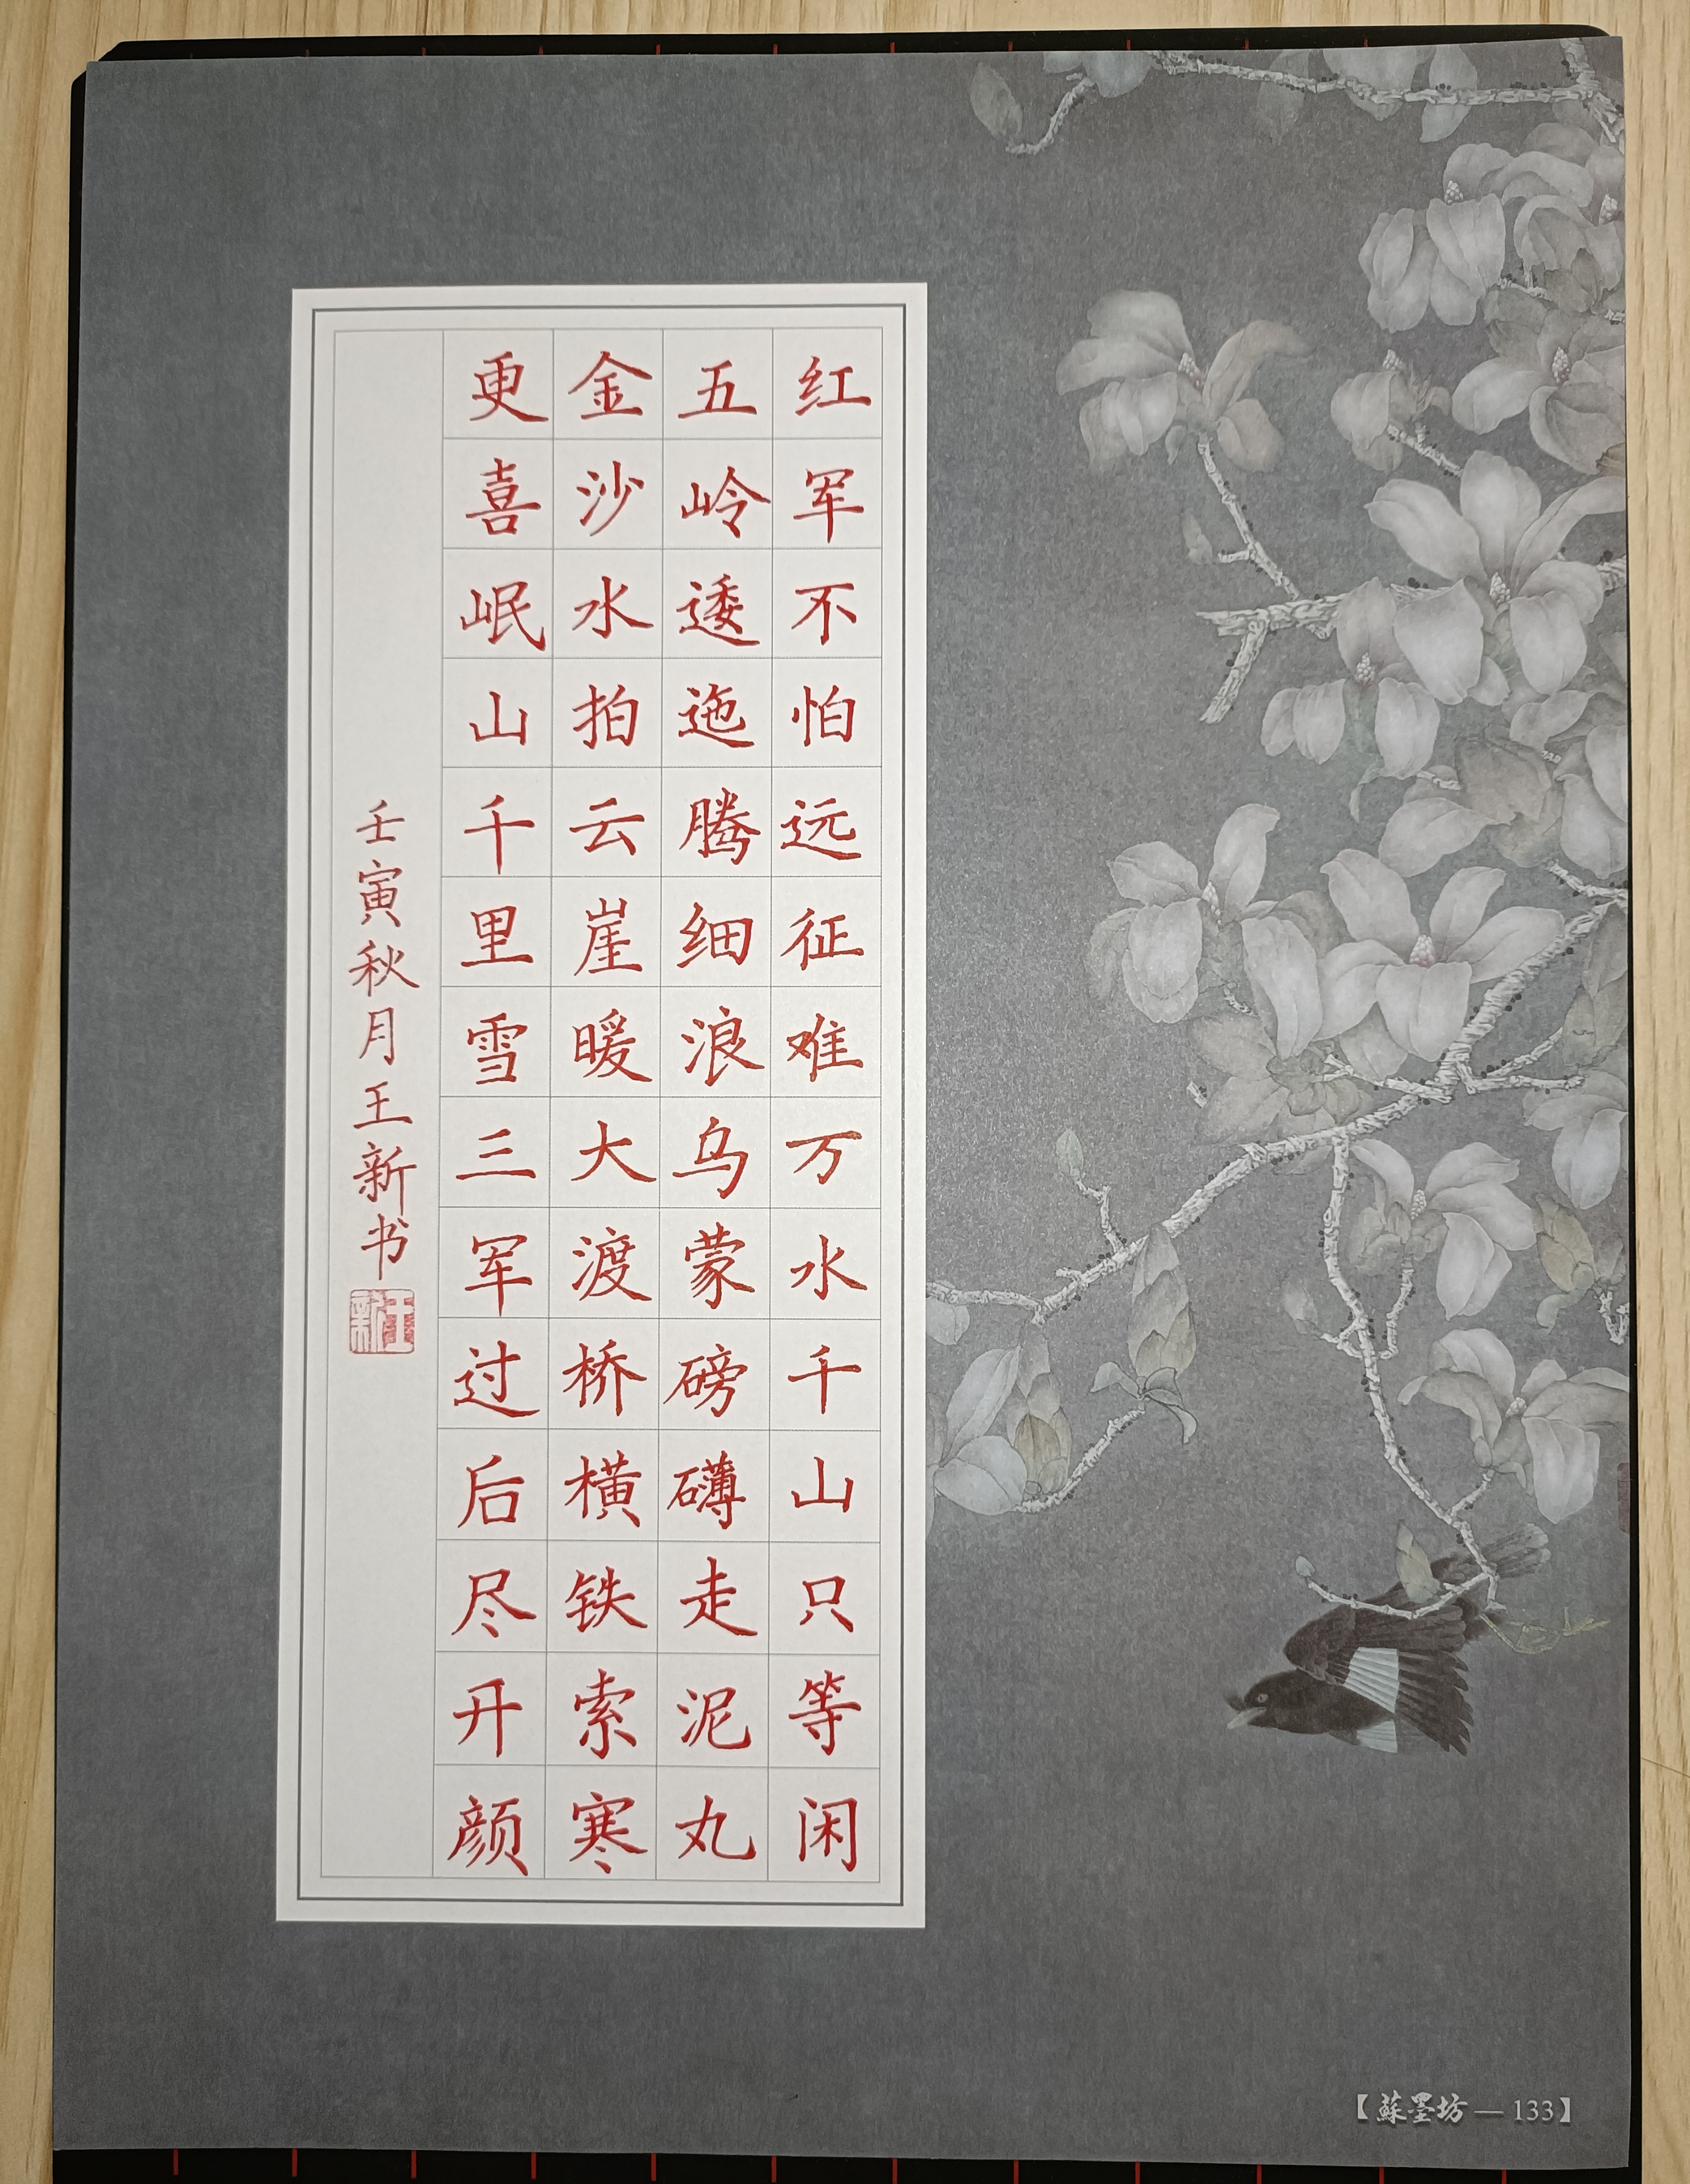 红军不怕远征难万水千山只等闲
五岭逶迤腾细浪乌蒙磅礴走泥丸
金沙水拍云崖暖大渡桥横铁索寒
更喜岷山千里雪三军过后尽开颜
壬寅秋月王新书
王新
【蘇墨坊—133】